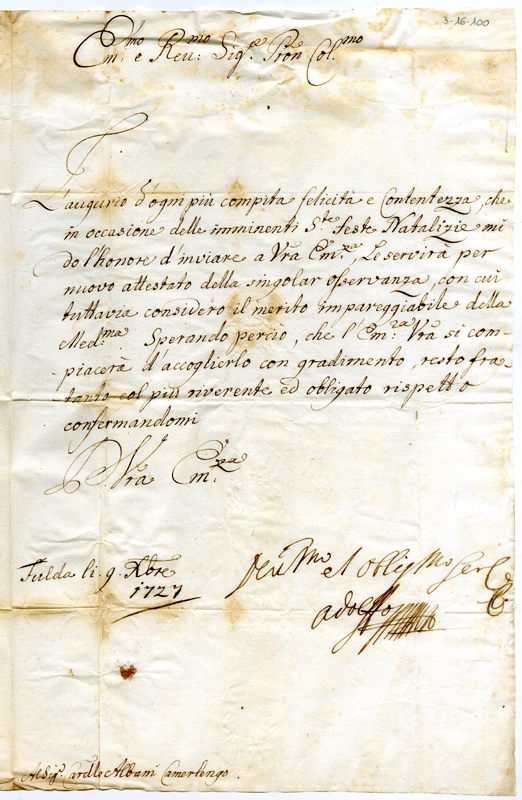 3-16-100
Em.mo e Reu.mo Sig.re Pron Col.mo
L'augurio d'ogni più compita felicità e Contentezza, che
in occasione delle imminenti S.te Feste Natalizie mi
do l'honore d'inviare a Vrã Em.za, Le servirà per
nuovo attestato della singolar osservanza, con cui
tuttavia considero il merito impareggiabile della
Med.ma Sperando perciò, che l'Em.za Vrã si com-
piacerà d'accoglierlo con gradimento, resto fra-
tanto col più riverente ed obligato rispetto
confermandomi
Vrã Em.za
Fulda li 9 Xbre
1727
et Obligmo Ser
adolffo
Al Sig.r Cardle Albani Camerlengo.